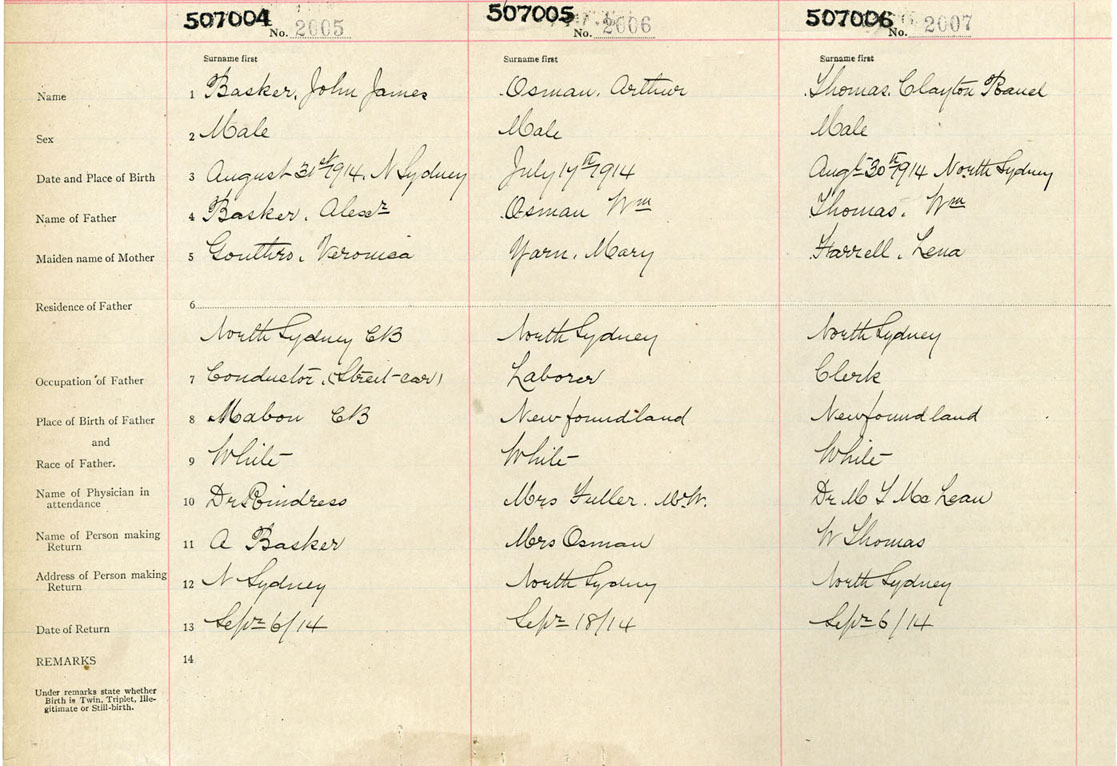 507004 507005 507006
No. 2005 No. 2606 No. 2007
Surname first Surname first Surname first
Name 1 Basker, John James Osman, Arthur Thomas, Clayton
Sex 2 Male Male Male
Date and Place of Birth 3 August 31st 1914, N Sydney July 17th 1914 Augt 30th 1914 North Sydney
Name of Father 4 Basker, Alexr Osman Wm Thomas, Wm
Maiden name of Mother 5 Gouthro, Veronica Yarn, Mary Farrell, Lena
Residence of Father 6
North Sydney CB North Sydney North Sydney
Occupation of Father 7 Conductor, (Street-car) Laborer Clerk
Place of Birth of Father 8 Mabou CB Newfoundland Newfoundland
and
Race of Father. 9 White White White
Name of Physician in
attendance 10 Dr Mrs Fuller. M.W. Dr McLean
Name of Person making
Return 11 A Basker Mrs Osman W Thomas
Address of Person making
Return 12 N Sydney North Sydney North Sydney
Date of Return 13 Sepr 6/14 Sepr 18/14 Sepr 6/14
REMARKS 14
Under remarks state whether
Birth is Twin, Triplet, Ille-
gitimate or Still-birth.